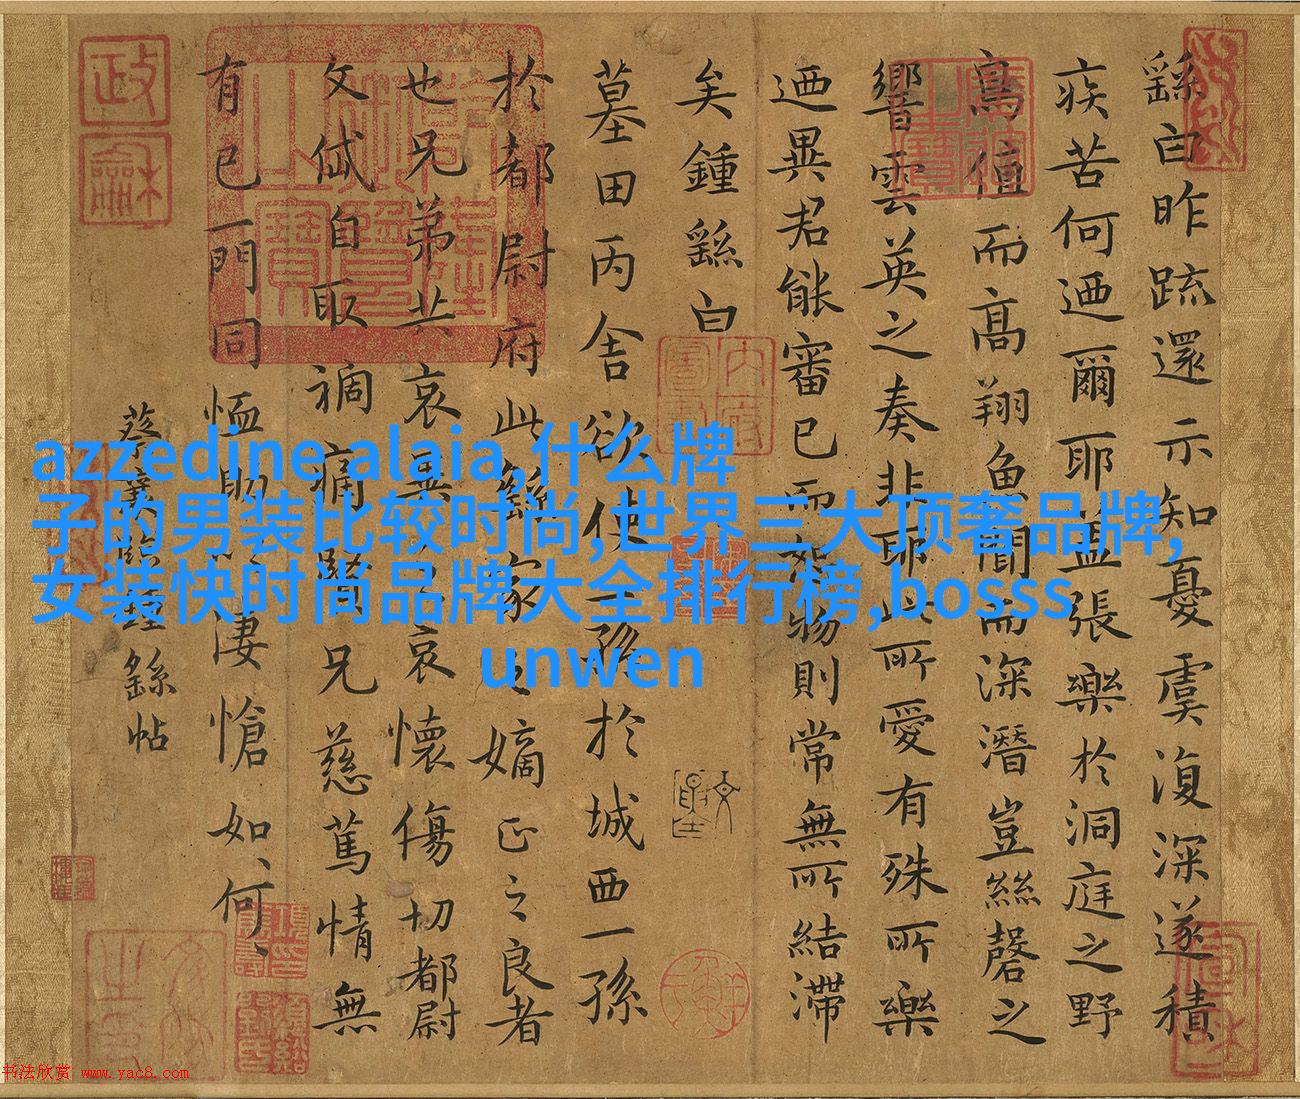 繇白昨疏還示知憂虞復深遂積
疾苦何迺爾耶蓋張樂於洞庭之野
鳥值而高翔魚聞而深潛豈絲磬之
響雲英之奏非耶此所愛有殊所樂
迺異君能審己而恕物則常無所結滯
矣鍾繇白
墓田丙舍欲使一孫於城西一孫
於都尉府此繇家之嫡正之良者
也兄弟共哀異之哀懷傷切都尉
文岱自取禍痛賢兄慈篤情無
有已一門同恤助以淒愴如何
蔡襄臨鍾繇帖
azzedine alaia,什么牌
子的男装比较时尚,世界三大顶奢品牌,
女装快时尚品牌大全排行榜,bosss
unwen
书法欣赏 www.yac8.com